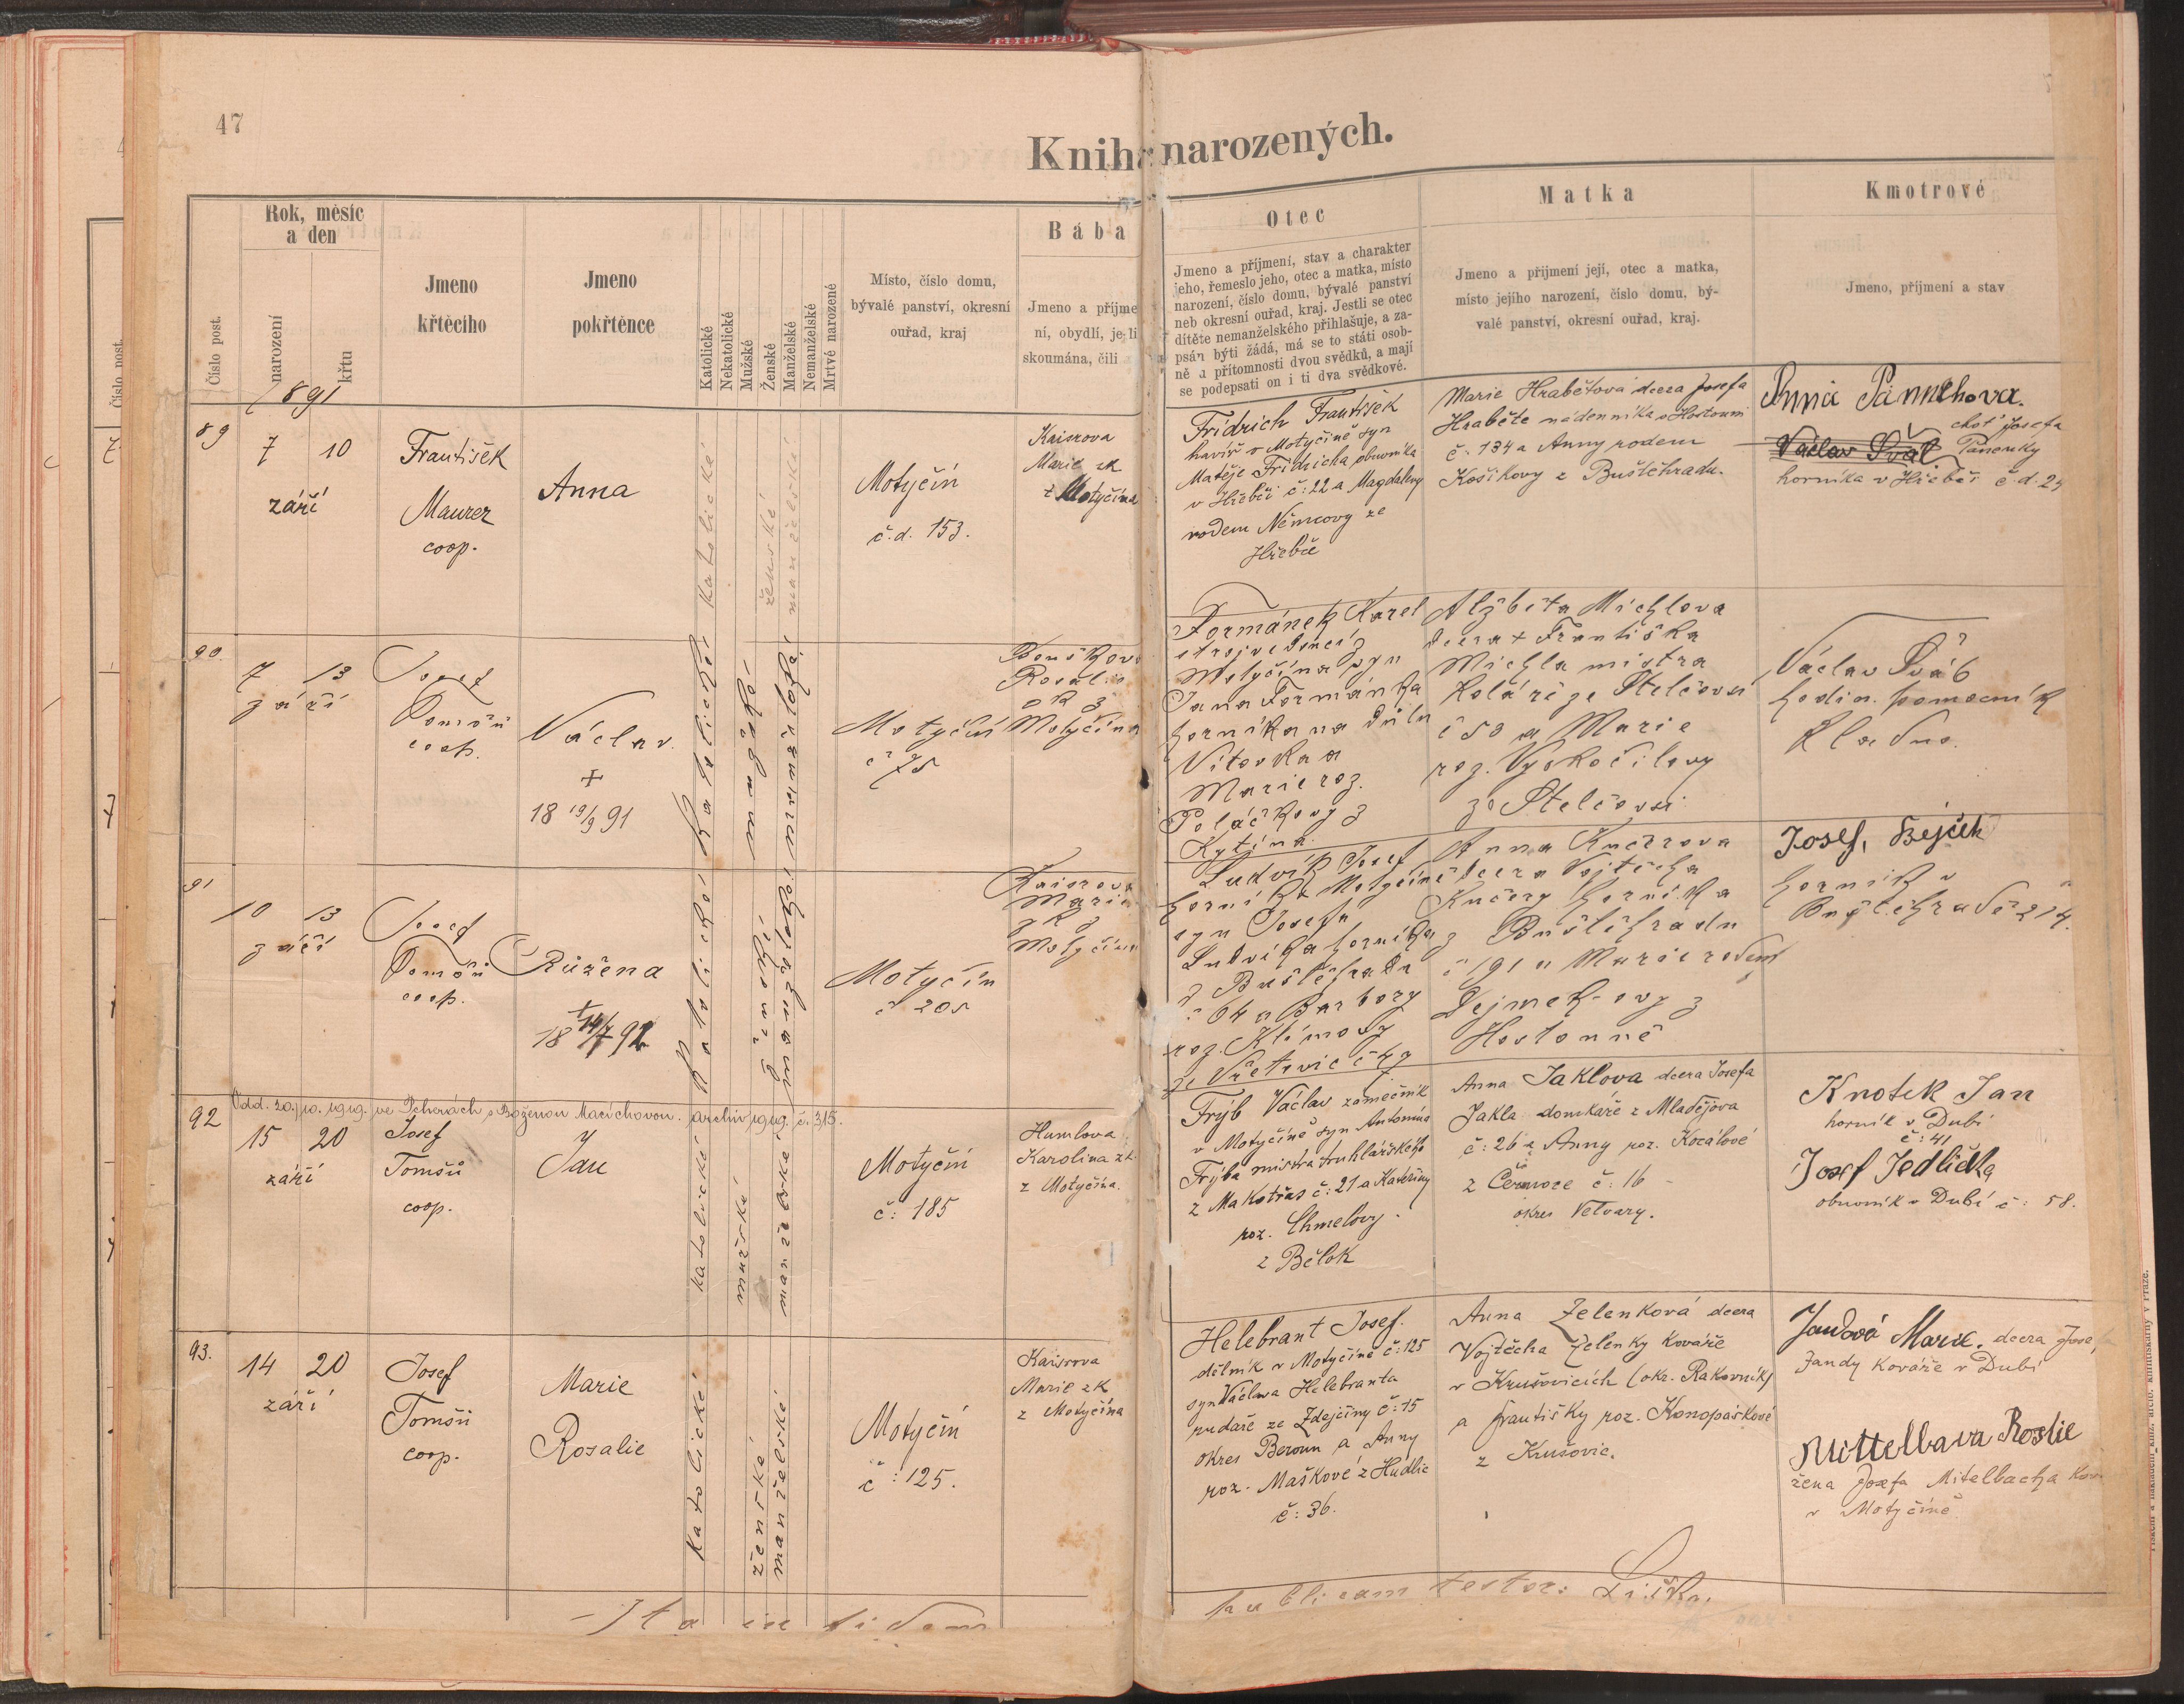 47
Kniha narozených.
Číslo post.
Rok, měsíc
a den
narození
křtu
Jmeno
křtěcího
Jmeno
pokřtěnce
Katolické
Nekatolické
Mužské
Ženské
Manželské
Nemanželské
Mrtvě narozené
Místo, číslo domu,
bývalé panství, okresní
ouřad, kraj
Bába
Jmeno a příjme
ní, obydlí, je-li
skoumána, čili
Otec
Jmeno a příjmení, stav a charakter
jeho, řemeslo jeho, otec a matka, místo
narození, číslo domu, bývalé panství
neb okresní ouřad, kraj. Jestli se otec
dítěte nemanželského přihlašuje, a za-
psán býti žádá, má se to státi osob-
ně a přítomnosti dvou svědků, a mají
se podepsati on i ti dva svědkové.
Matka
Jmeno a příjmení její, otec a matka,
místo jejího narození, číslo domu, bý-
valé panství, okresní ouřad, kraj.
Kmotrové
Jmeno, příjmení a stav
1891
89
7 10
září
František
Maurer
coop.
Anna
katolické
ženské
manželské
Motyčín
č.d. 153.
Kaisrova
Marie zk
z Motyčína
Fridrich František
havíř v Motyčíně syn
Matěje Fridricha obuvníka
v Hřebči č: 22 a Magdaleny
rodem Němcovy ze
Hřebče
Marie Hrabětová dcera Josefa
Hraběte nádenníka v Hostouni
č. 134 a Anny rodem
Košíkovy z Buštěhradu.
Anna
choť Josefa
Václav Šváb
horníka v Hřebči č.d. 25
90
7 13
září
Josef
Tomšů
coop.
Václav.
+
18 19/9 91
Katolické
mužské
manželské
Motyčín
č 75
Rosalie
zk z
Motyčína
Formánek Karel
strojvedoucí z
Motyčína syn
Jana Formánka
horníka na dolu
Vítovka a
Marie roz.
Poláčkovy z
Kytína.
Alžběta Michlova
dcera + Františka
Michla mistra
koláře ze Stelčovsi
č 50 a Marie
roz. Vyskočilovy
ze Stelčovsi
Václav Šváb
hodin. pomocník
Kladno.
91
10 13
září
Josef
Tomšů
coop.
Růžena
+
18 14/7 92
Katolické
ženské
manželské
Motyčín
č 205
Kaisrova
Marie
zk z
Motyčína
Ludvík Josef
horník z Motyčína
syn Josefa
Ludvíka horníka
z Buštěhradu
č 64 a Barbory
roz. Klímovy
ze Středovic
Anna Kučerova
dcera Vojtěcha
Kučery horníka
z Buštěhradu
č 191 a Marie rodem
Dejmek-ovy z
Hostouně
Josef,
horník v
Buštěhradě 214.
92
Odd. 20./10. 1919. ve Pcherách s Boženou Macíchovou. archiv 1919. č. 315.
15 20
září
Josef
Tomšů
coop.
Jan
katolické
mužské
manželské
Motyčín
č: 185
Humlova
Karolina zk.
z Motyčína.
Frýb Václav zámečník
v Motyčíně syn Antonína
Frýba mistra truhlářského
z Makotřas č: 21 a Kateřiny
roz. Chmelovy
z Bělok
Anna Jaklova dcera Josefa
Jakla domkáře z Mladějova
č: 26 a Anny roz. Kozálové
z č: 16
okres Velvary.
Knotek Jan
horník v Dubí
č: 41
Josef Jedlička
obuvník v Dubí č: 58.
93.
14 20
září
Josef
Tomšů
coop.
Marie
Rosalie
katolické
ženské
manželské
Motyčín
č: 125.
Kaisrova
Marie zk
z Motyčína
Helebrant Josef.
dělník v Motyčíně č: 125
syn Václava Helebranta
rudaře ze Zdejčiny č: 15
okres Beroun a Anny
roz. Maškové z Hudlic
č: 36.
Anna Zelenková dcera
Vojtěcha Zelenky kováře
v Krušovicích (okr. Rakovník)
a Františky roz. Konopáskové
z Krušovic.
Jandová Marie. dcera Josefa
Jandy kováře v Dubí
Rosalie
žena Josefa Mitelbacha
v Motyčíně
-Ita in fidem
publicam testor: Liška.